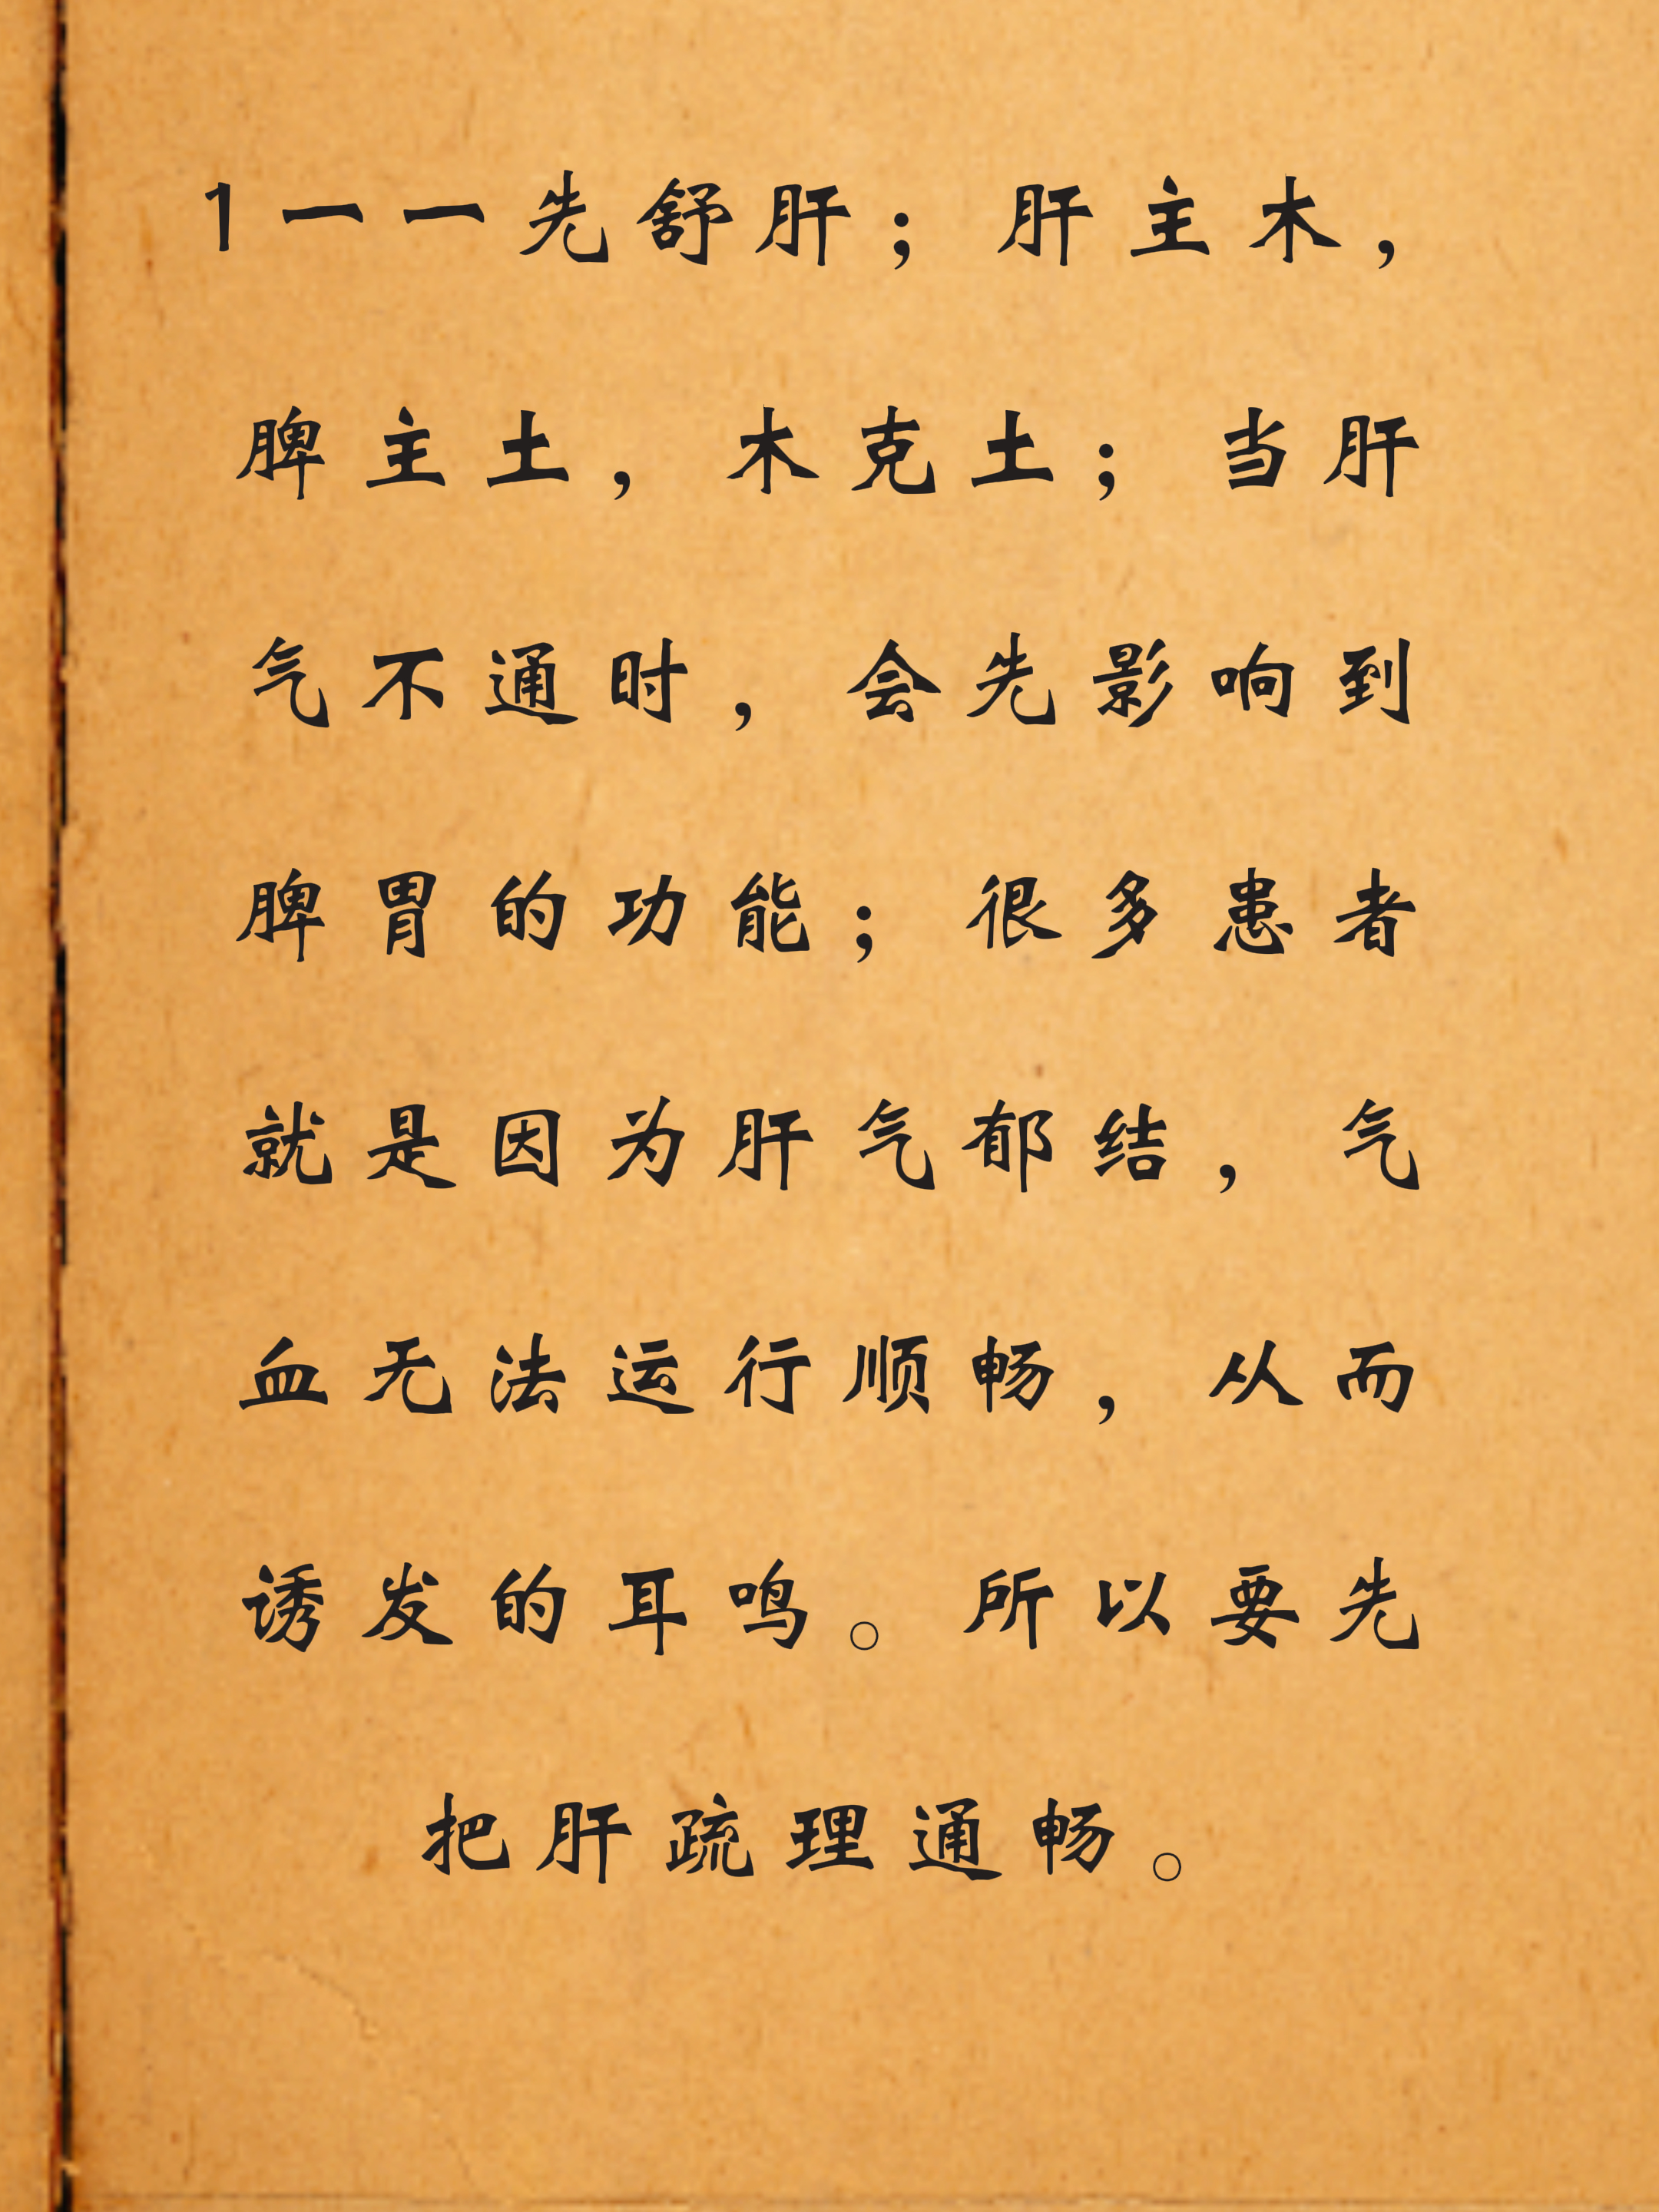 1一一先舒肝；肝主木，
脾主土，木克土；当肝
气不通时，会先影响到
脾胃的功能；很多患者
就是因为肝气郁结，气
血无法运行顺畅，从而
诱发的耳鸣。所以要先
把肝疏理通畅。